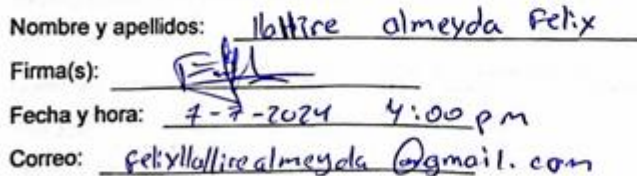 Nombre y apellidos: llallire almeyda Felix
Firma(s):
Fecha y hora: 7-7-2024 4:00 pm
Correo: felixllallirealmeyda @gmail.com